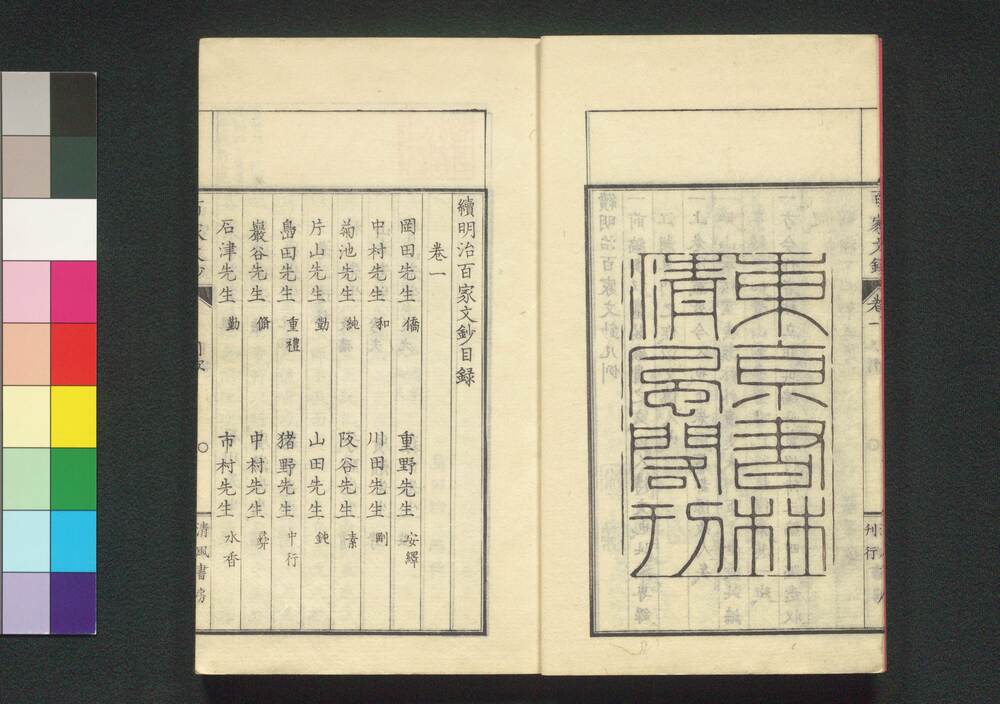 東京書林
清風閣刊
百家文鈔
卷一
刊行
續明治百家文鈔目録
卷一
岡田先生 僑 重野先生 安繹
中村先生 和 川田先生 剛
菊池先生 純 阪谷先生 素
片山先生 勤 山田先生 鈍
島田先生 重禮 猪野先生 中行
巖谷先生 脩 中村先生
石津先生 勤 市村先生 水香
清風書房